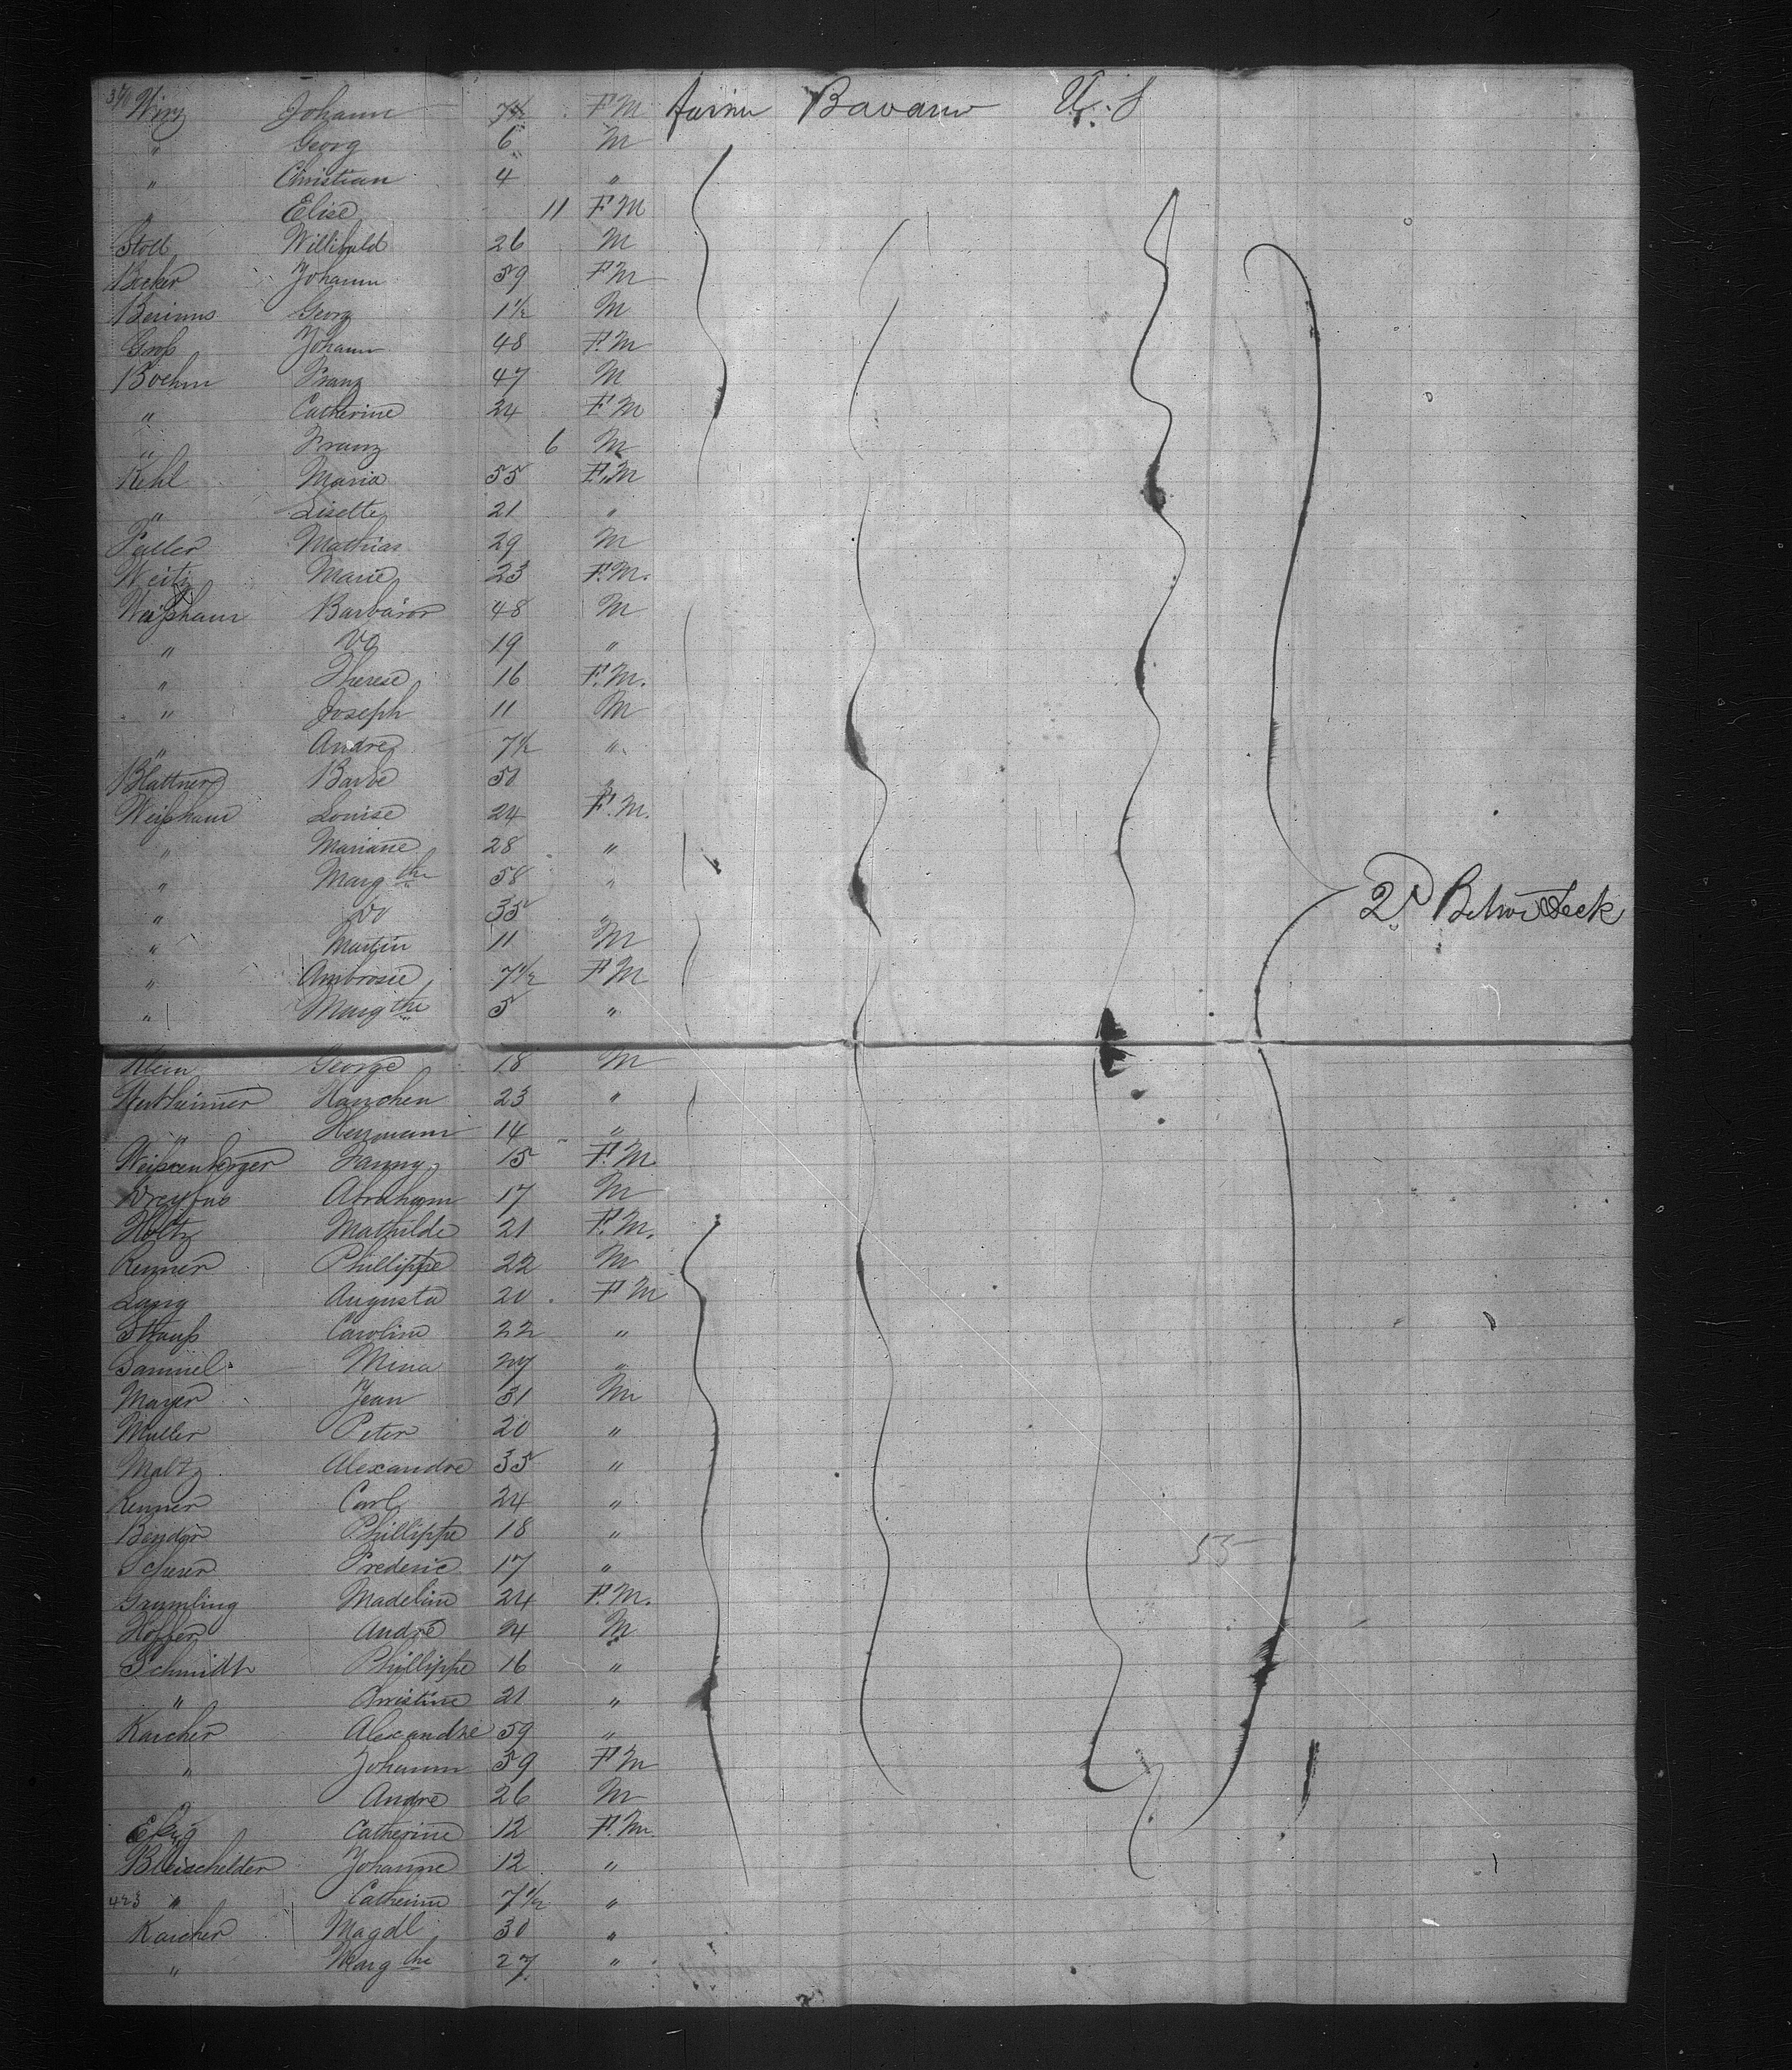 Wirz Johann 7½ F M farmer Bavaria U. S
" Georg 6 M
" Christian 4 "
Elise 11 F M
Stoll Willibald 26 M
Becker Johann 59 F M
Georg 1½ M
Groß Johann 48 F. M
Boehm Franz 47 M
" Catherine 24 F M
" Franz 6 M
Kehl Maria 55 F. M
" Lisette 21 "
Faller Mathias 29 M
Weitz Marie 23 F. M.
Weißhaur Barbara 48 M
" Do 19 "
" Therese 16 F. M.
" Joseph 11 M
" Andre 7½ "
Blattner Barbe 50 "
Weißhaur Louise 24 F. M.
" Mariane 28 "
" Margthe 58 "
" Do 35 " 2d Betwe Deck
" Martin 11 M
" Ambrosie 7½ F M
" Margthe 5 "
Klein George 18 M
Wertheimer Hanchen 23 "
" Hermann 14 "
Weißenberger Fanny 15 F. M.
Dreyfus Abraham 17 M
Holtz Mathilde 21 F. M.
Renner Phillippe 22 M
Lang Augusta 20 F M
Strauß Caroline 22 "
Samuel Mina 27 "
Mayer Jean 31 M
Muller Peter 20 "
Maltz Alexandre 35 "
Renner Carl 24 "
Bender Phillippe 18 "
Scherer Frederic 17 "
Gramling Madeline 24 F. M.
Hoffer André 24 M
Schmidt Phillippe 16 "
" Christine 21 "
Karcher Alexandre 59 "
" Johann 59 F M
" Andre 26 M
Catherine 12 F. M.
Bleischelder Johanne 12 "
423 " Catherine 7½ "
Karcher Magdl 30 "
" Margthe 27 "
55